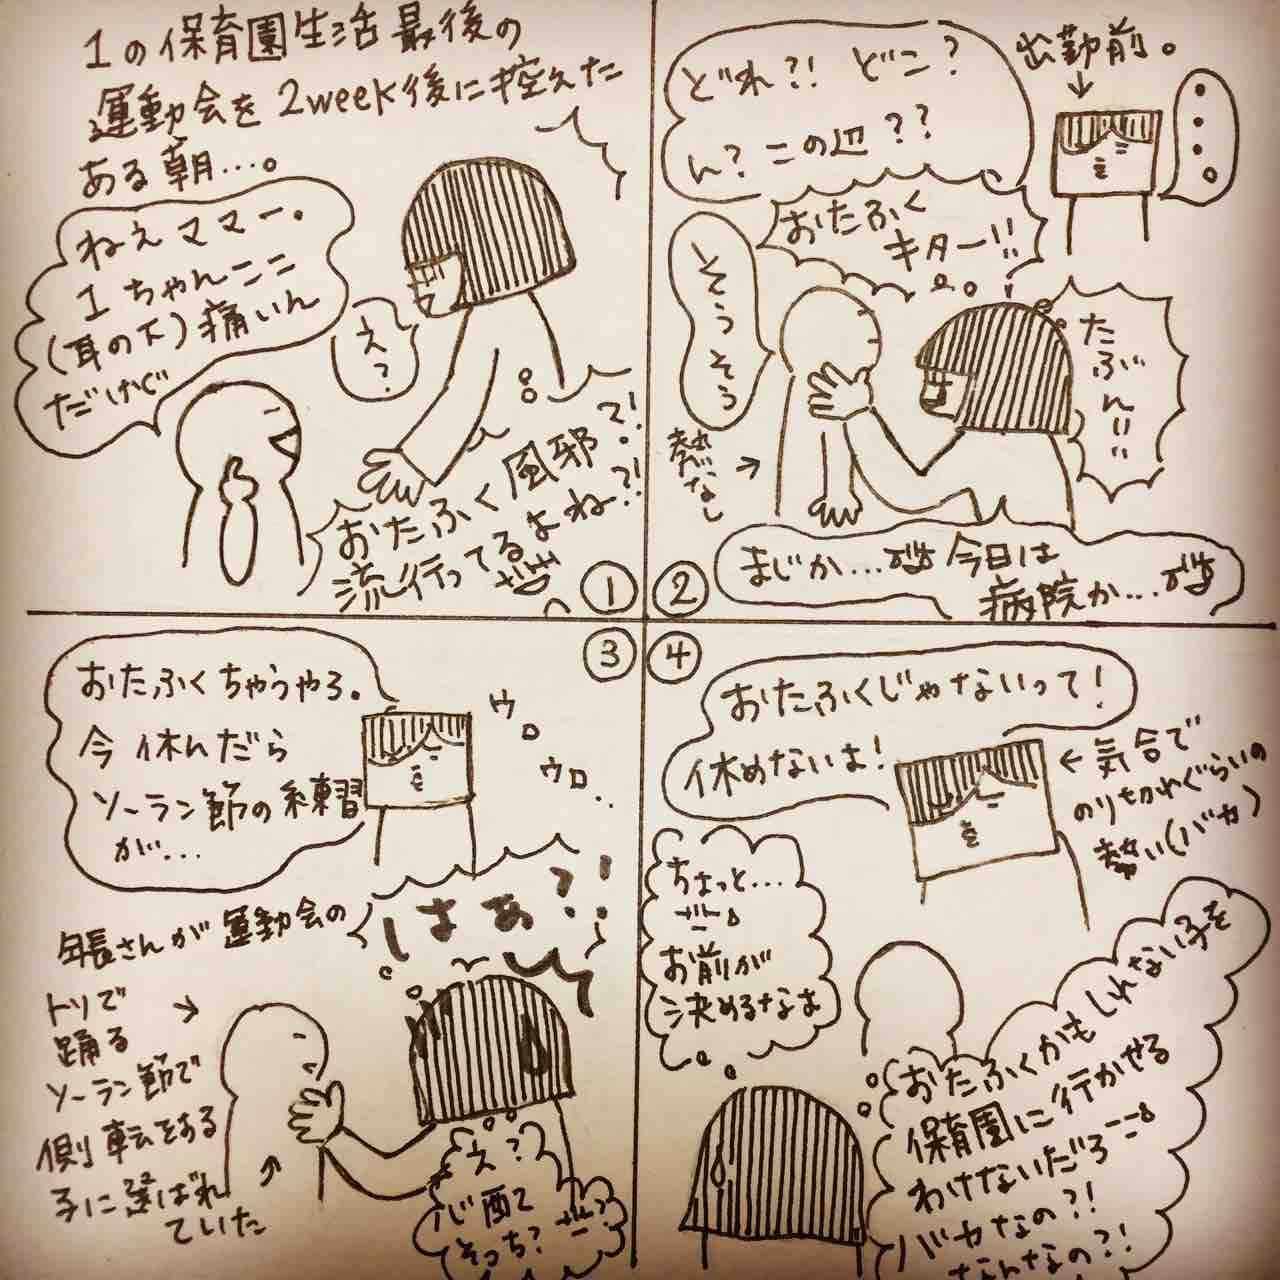 1の保育園生活最後の
運動会を2week後に控えた
ある朝…。
ねぇママー。
1ちゃんここ
(耳の下)痛いん
だけど
え?
おたふく風邪
流行ってるよね?!
?!
①
出勤前。
どれ?! どこ?
ん? この辺??
おたふく
キター!!
そうそう
たぶん!!!
熱なし
まじか… 今日は
病院か…
②
③
おたふくちゃうやろ。
今休んだら
ソーラン節の練習
が…
ウロ
ウロ..
はあ?!
年長さんが運動会の
トリで
踊る
ソーラン節で
側転をする
子に選ばれ
ていた
え?
心配て
そっち?
④
おたふくじゃないって!
休めないよ!
←気合で
のりきれぐらいの
勢い(バカ)
ちょっと…
お前が
決めるなよ
おたふくかもしれない子を
保育園に行かせる
わけないだろ
バカなの?!
なんなの?!